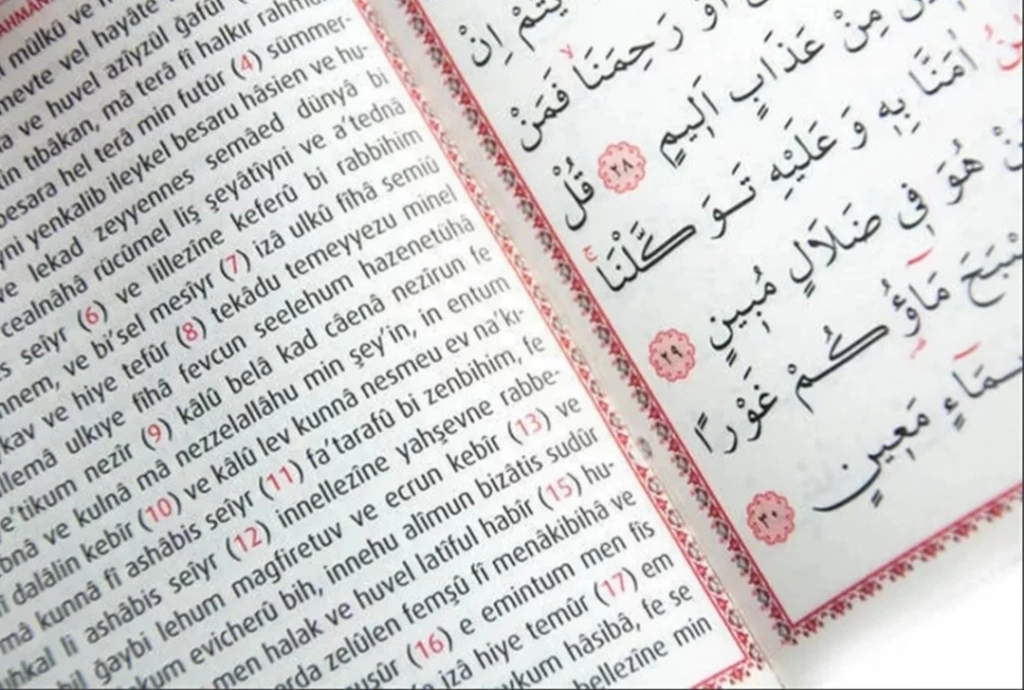 mülkü ve
mevte vel hayâte
ve huvel aziyzül ğafûr
tıbâkan, mâ terâ fî halkır rahmâ
besara hel terâ min futûr (4) sümmer-
yni yenkalib ileykel besaru hâsien ve hu-
ve lekad zeyyennes semâed dünyâ bi
cealnâhâ rücûmel liş şeyâtîyni ve a'tednâ
s seîyr (6) ve lillezîne keferû bi rabbihim
nnem, ve bi'sel mesîyr (7) izâ ulkû fîhâ semiû
kav ve hiye tefûr (8) tekâdu temeyyezu minel
llemâ ulkıye fîhâ fevcun seelehum hazenetühâ
e'tikum nezîr (9) kâlû belâ kad câenâ nezîrun fe
bnâ ve kulnâ mâ nezzelallâhu min şey'in, in entum
î dalâlin kebîr (10) ve kâlû lev kunnâ nesmeu ev na'kı-
mâ kunnâ fî ashâbis seîyr (11) fa'tarafû bi zenbihim, fe
uhkal li ashâbis seîyr (12) innellezîne yahşevne rabbe-
bil ğaybi lehum mağfiretuv ve ecrun kebîr (13) ve
kum evicherû bih, innehu alîmun bizâtis sudûr
men halak ve huvel latîful habîr (15) hu-
erda zelûlen femşû fî menâkibihâ ve
uşûr (16) e emintum men fîs
fe izâ hiye temûr (17) em
ykum hâsibâ, fe se
ellezîne min
يْتُمْ اِنْ
اَوْ رَحِمَنَا فَمَنْ
مِنْ عَذَابٍ اَلِيمٍ ٢٨ قُلْ
اٰمَنَّا بِهِ وَعَلَيْهِ تَوَكَّلْنَا
هُوَ فِى ضَلَالٍ مُبِينٍ ٢٩
صْبَحَ مَاؤُكُمْ غَوْرًا
مَاءٍ مَعِينٍ ٣٠